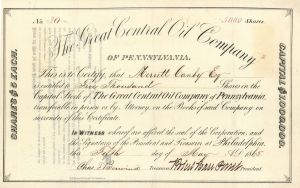 No. 30 5000 Shares
The Great Central Oil Company
OF PENNSYLVANIA.
This is to Certify, that Merritt Canby Esq
is entitled to Five Thousand Shares in the
Capital Stock of The Great Central Oil Company of Pennsylvania
transferable in person or by Attorney, on the Books of said Company on
surrender of this Certificate.
In Witness whereof are affixed the seal of the Corporation, and
the Signatures of the President and Treasurer at Philadelphia
this day of May A.D. 1865
Treasurer
SHARES $5 EACH.
CAPITAL $1,000,000.